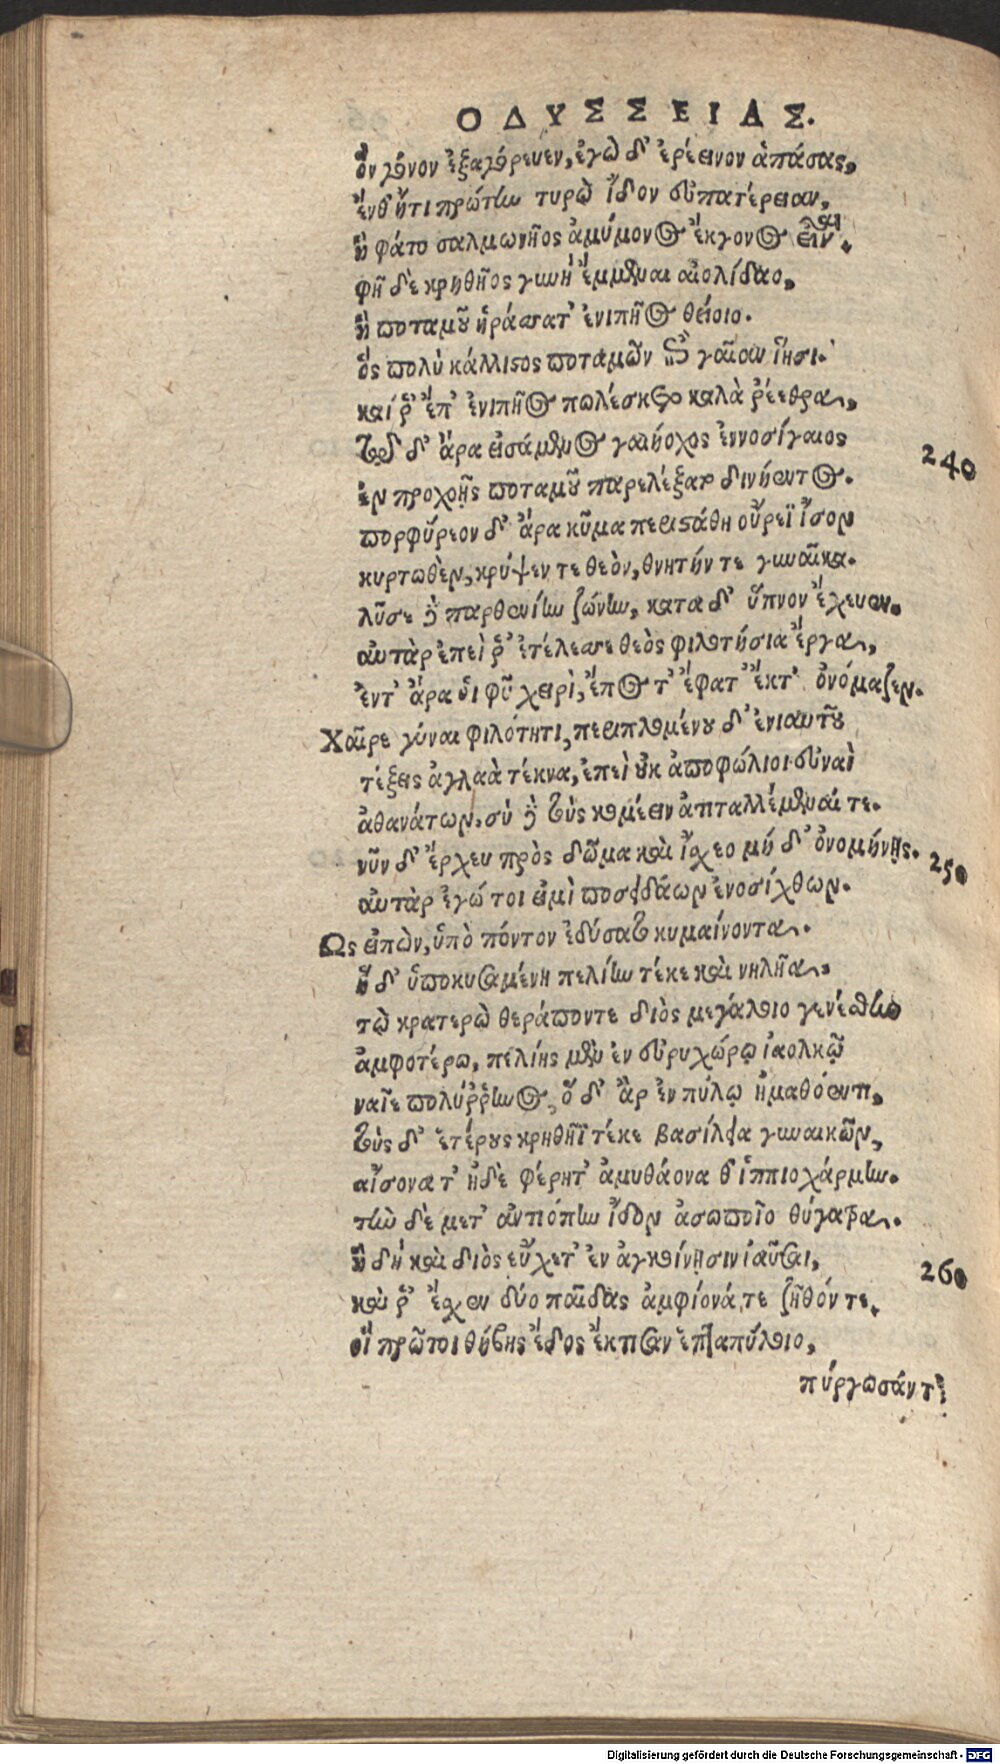 ΟΔΥΣΣΕΙΑΣ.
ὃν γόνον ἐξαγόρευεν, ἐγὼ δ' ἐρέεινον ἁπάσας,
ἔνθ' ἤτι πρώτην τυρὼ ἴδον εὐπατέρειαν,
ἣ φάτο σαλμωνῆος ἀμύμονος ἔκγονος εἶναι.
φῆ δὲ κρηθῆος γυνὴ ἔμμεναι αἰολίδαο,
ἣ ποταμοῦ ἠράσατ' ἐνιπῆος θείοιο.
ὃς πολὺ κάλλιστος ποταμῶν ἐπὶ γαῖαν ἵησι.
καί ῥ' ἐπ' ἐνιπῆος πωλέσκετο καλὰ ῥέεθρα,
τῷ δ' ἄρα εἰσάμενος γαιήοχος ἐννοσίγαιος
240
ἐν προχοῇς ποταμοῦ παρελέξατο δινήεντος.
πορφύρεον δ' ἄρα κῦμα περιστάθη οὔρεϊ ἶσον
κυρτωθὲν, κρύψεν τε θεὸν, θνητήν τε γυναῖκα.
λῦσε δὲ παρθενίην ζώνην, κατα δ' ὕπνον ἔχευεν.
αὐτὰρ ἐπεὶ ῥ' ἐτέλεσσε θεὸς φιλοτήσια ἔργα,
ἔντ' ἄρα οἱ φῦ χειρὶ, ἔπος τ' ἔφατ' ἔκτ' ὀνόμαζεν.
Χαῖρε γύναι φιλότητι, περιπλομένου δ' ἐνιαυτοῦ
τέξεις ἀγλαὰ τέκνα, ἐπεὶ οὐκ ἀποφώλιοι εὐναὶ
ἀθανάτων. σύ δὲ τοὺς κομέειν ἀτιταλλέμεναί τε.
νῦν δ' ἔρχευ πρὸς δῶμα καὶ ἴσχεο μή δ' ὀνομήνῃς.
250
αὐτὰρ ἐγώ τοι εἰμὶ ποσειδάων ἐνοσίχθων.
Ως εἰπὼν, ὑπὸ πόντον ἐδύσατο κυμαίνοντα.
ἣ δ' ὑποκυσαμένη πελίην τέκε καὶ νηλῆα,
τὼ κρατερὼ θεράποντε διὸς μεγάλοιο γενέσθην
ἀμφοτέρω, πελίης μὲν ἐν εὐρυχώρῳ ἰαολκῷ
ναῖε πολύῤῥηνος, ὅ δ' ἂρ ἐν πύλῳ ἠμαθόεντι,
τοὺς δ' ἑτέρους κρηθῆϊ τέκε βασίλεια γυναικῶν,
αἴσονα τ' ἠδὲ φέρητ' ἀμυθάονα θ' ἱππιοχάρμην.
τὴν δὲ μετ' ἀντιόπην ἴδον ἀσωποῖο θύγατρα.
ἣ δὴ καὶ διὸς εὔχετ' ἐν ἀγκοίνῃσιν ἰαῦσαι,
260
καὶ ῥ' ἔτεκεν δύο παῖδας ἀμφίονά τε ζῆθόν τε.
οἳ πρῶτοι θήβης ἕδος ἔκτισαν ἑπταπύλοιο,
πύργωσάντ'
Digitalisierung gefördert durch die Deutsche Forschungsgemeinschaft - DFG